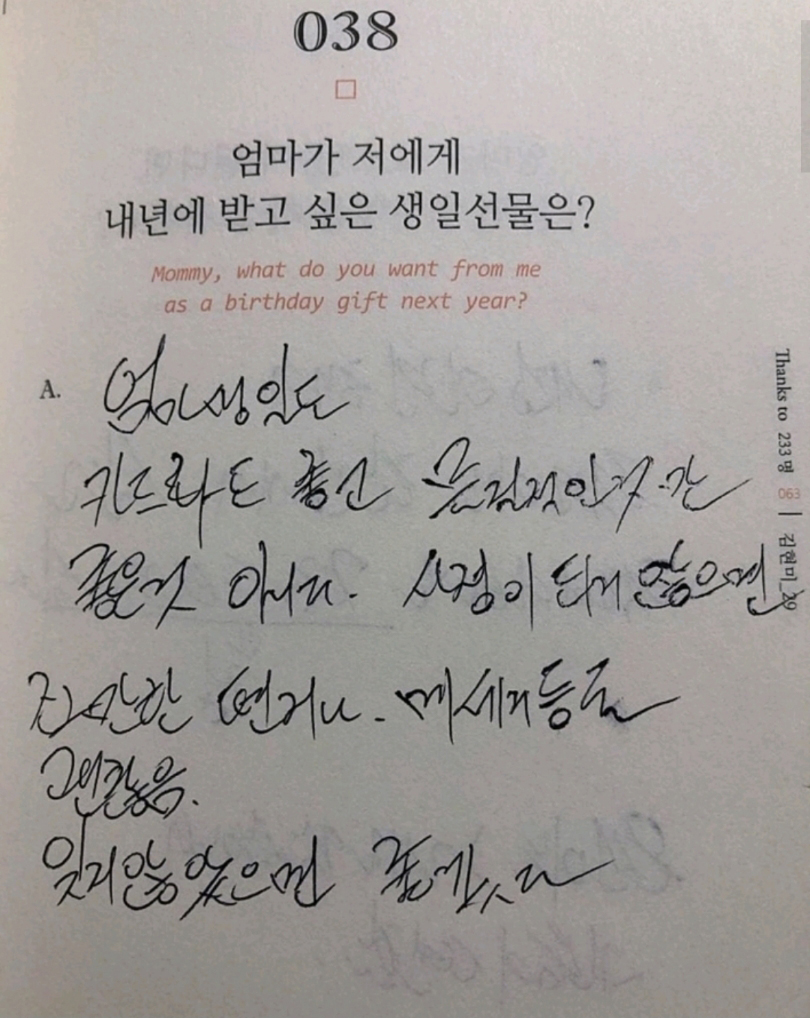 038
엄마가 저에게
내년에 받고 싶은 생일선물은?
Mommy, what do you want from me
as a birthday gift next year?
A. 엄마생일도
카드라도 좋고 물질적인것만
좋은것 아니다. 사정이 되지 않으면
간단한 메세지등도
괜찮음.
잊지않았으면 좋겠다
Thanks to 233명 063 | 김현미_29